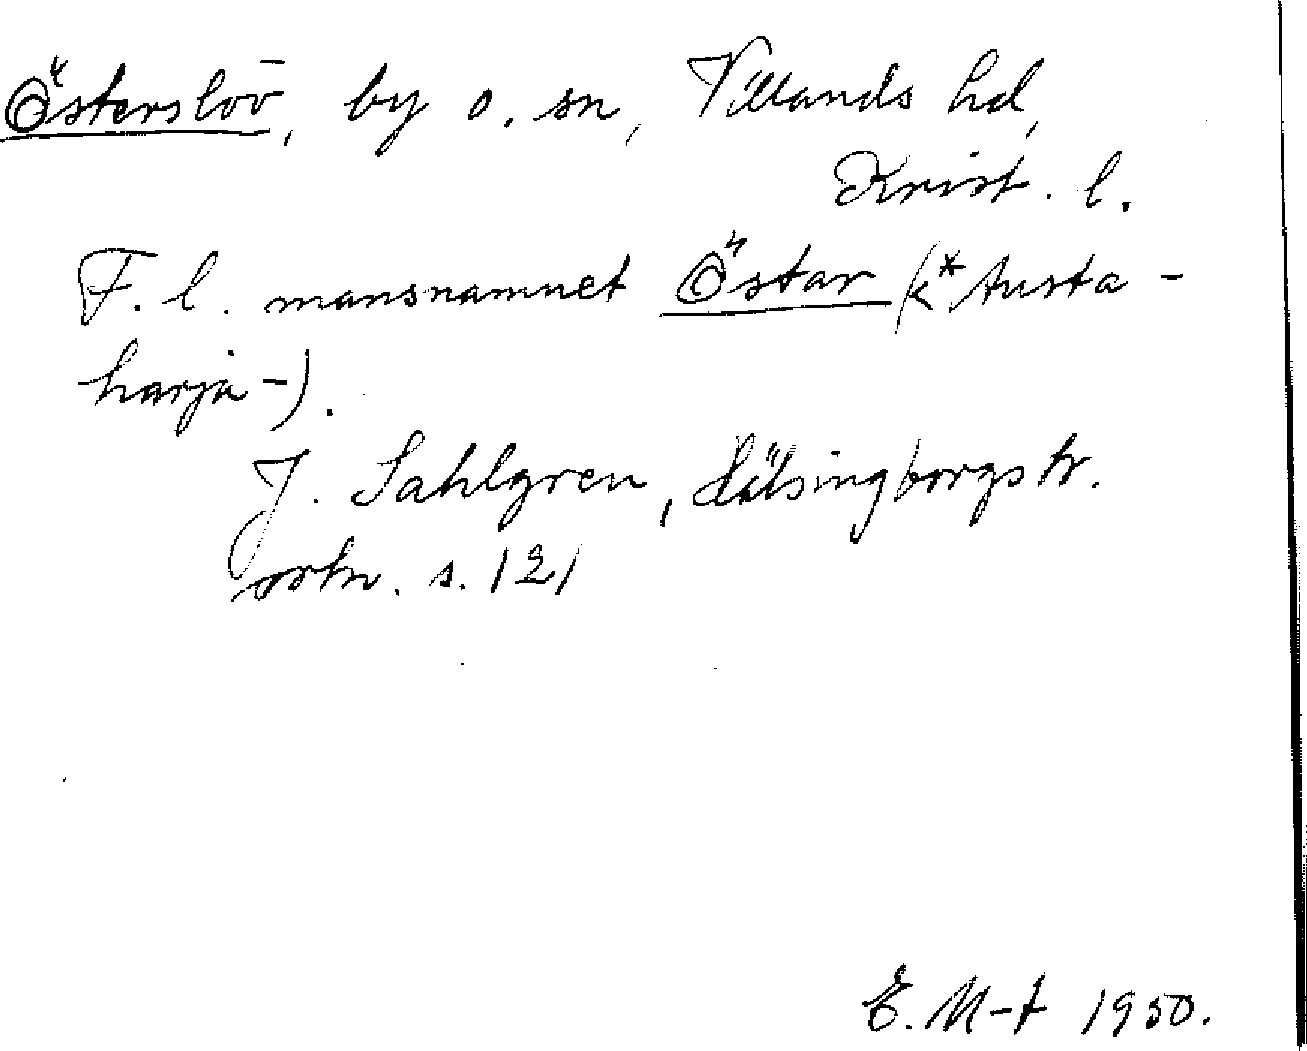 Österslöv, by o. sn, Villands hd,
Krist. l.
F. l. mansnamnet Östar (<*Austa-
harja-).
J. Sahlgren, Hälsingborgstr.
ortn. s. 121
E. M-t 1950.